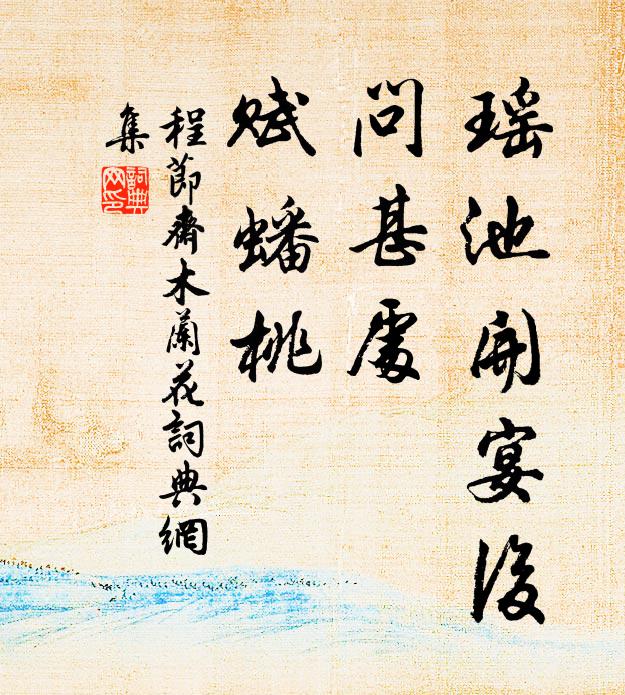 瑶池開宴後
問甚處
賦蟠桃
程節齋木蘭花詞典網
集
詞典
网印